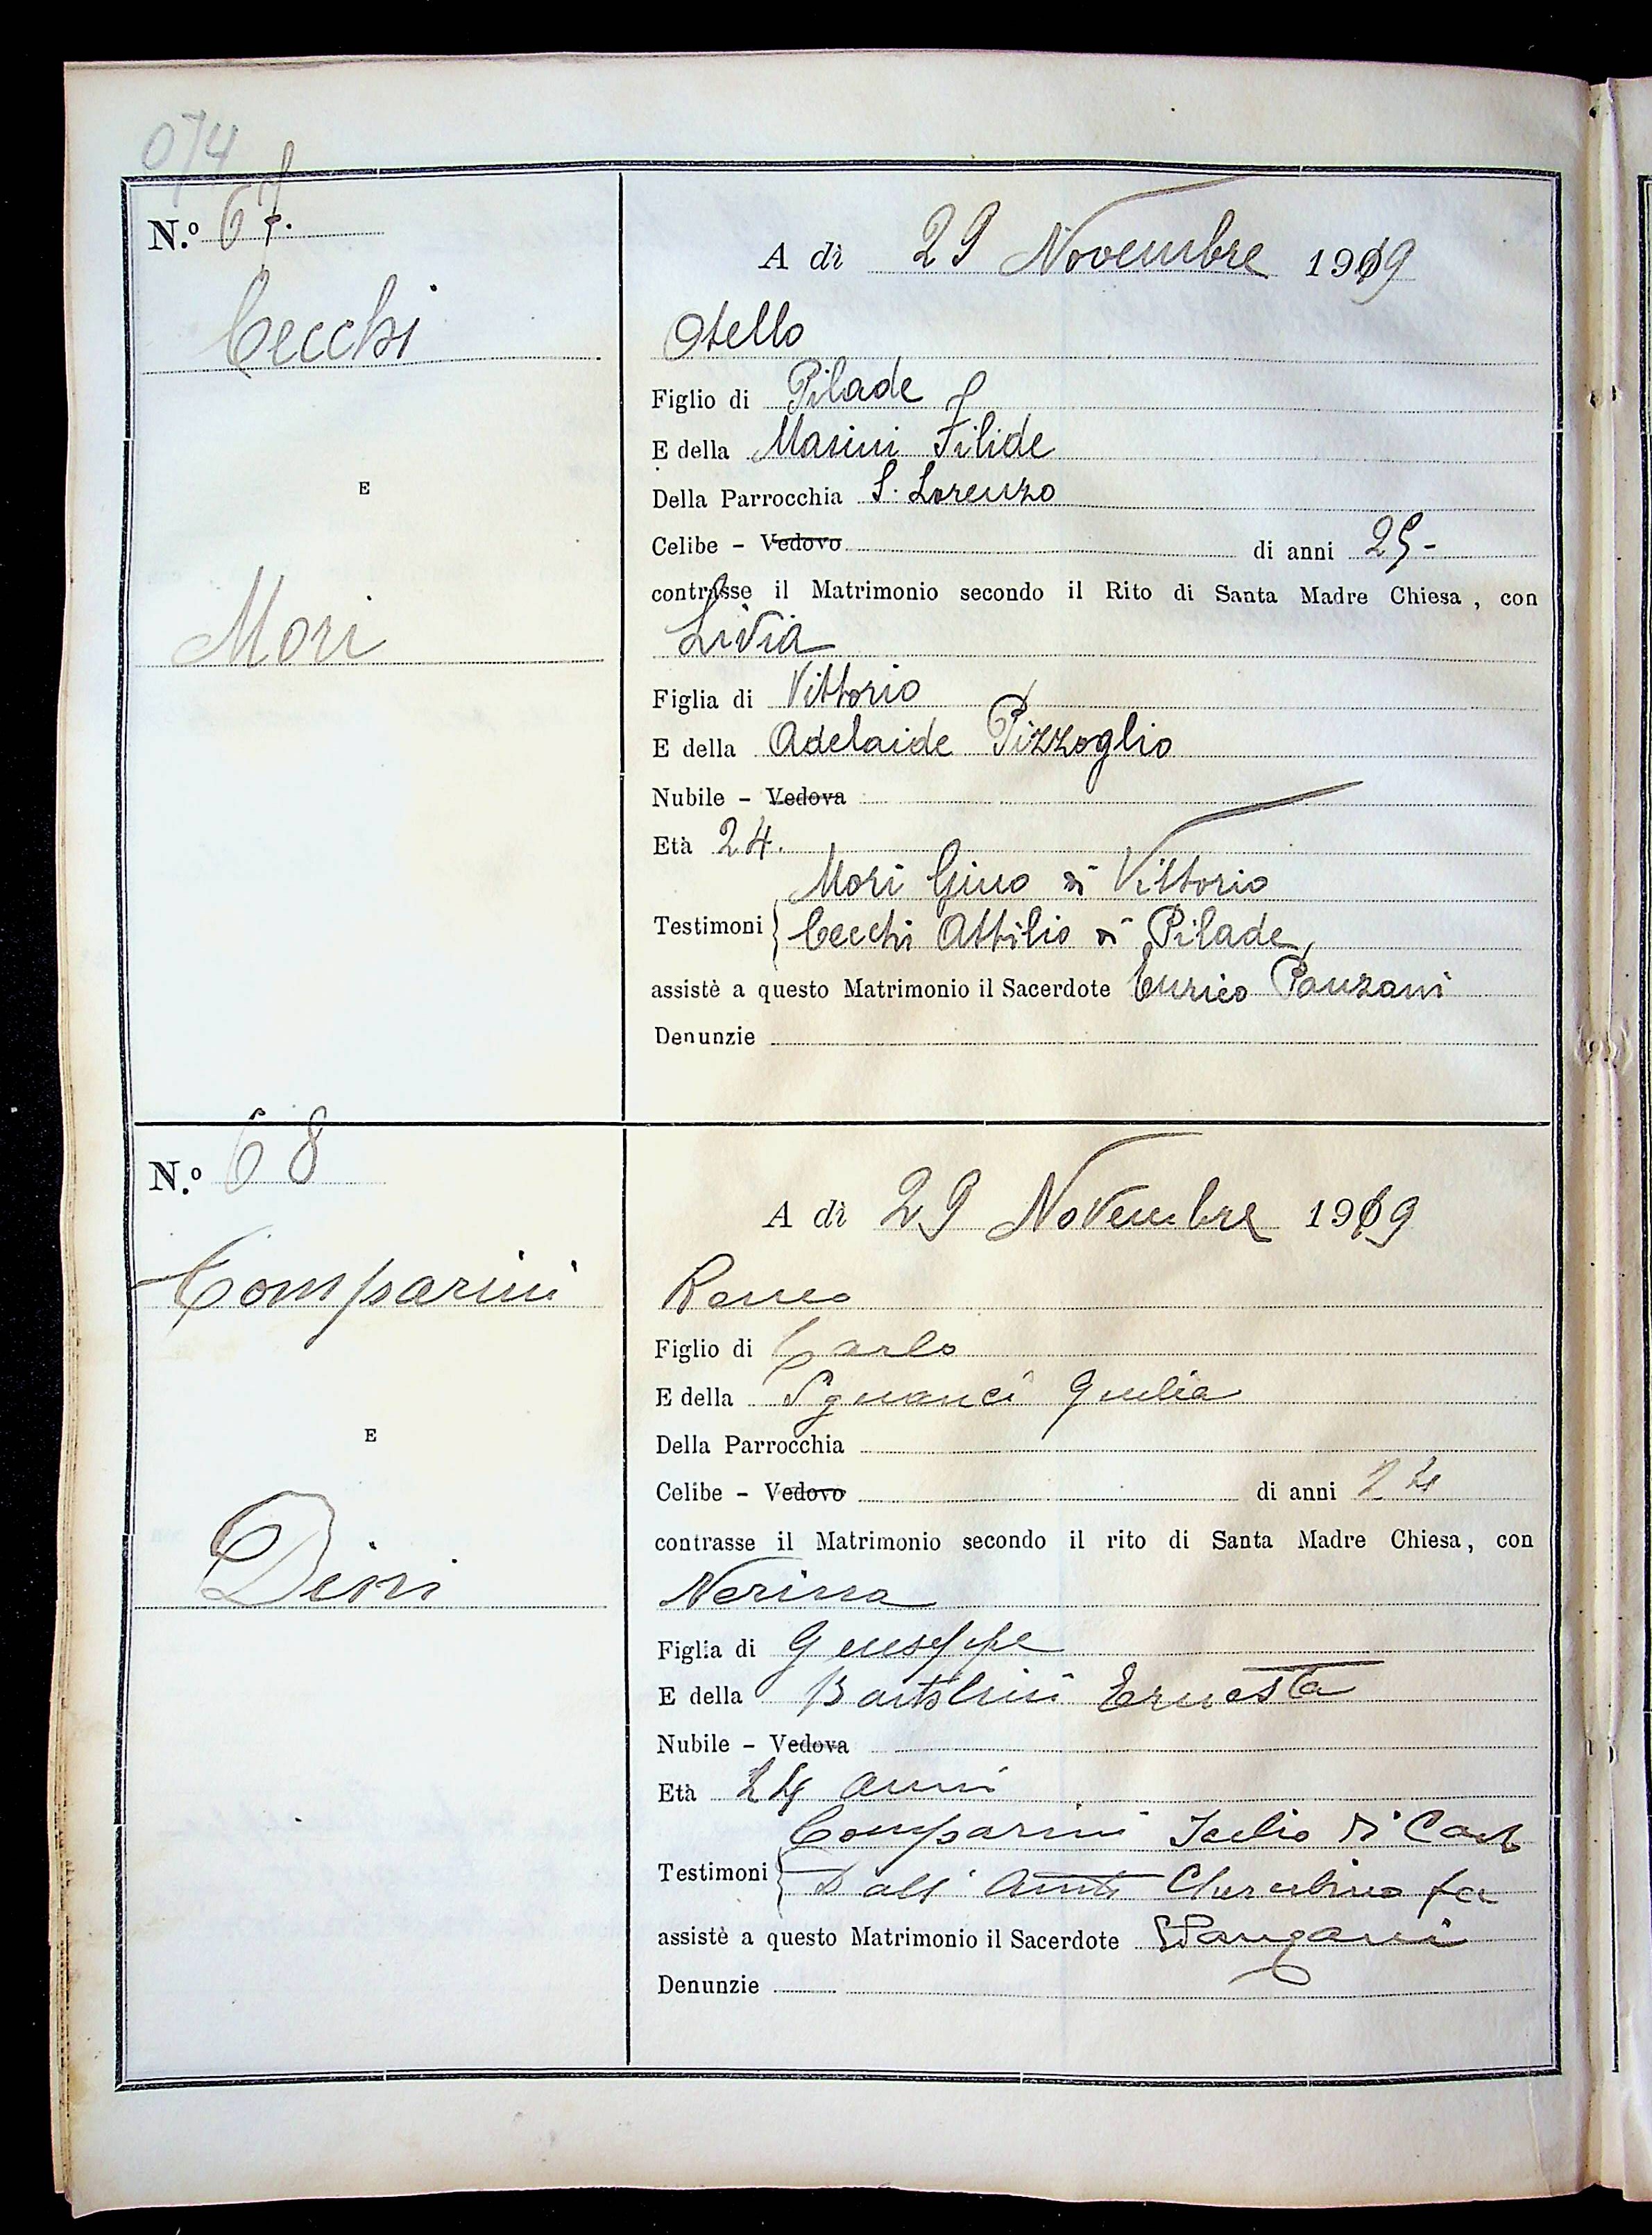 074
N.º 67.
Cecchi
E
Mori
A dì 29 Novembre 1919
Otello
Figlio di Pilade
E della Masini Filide
Della Parrocchia S. Lorenzo
Celibe - Vedovo di anni 25-
contrasse il Matrimonio secondo il Rito di Santa Madre Chiesa, con
Livia
Figlia di Vittorio
E della Adelaide Pizzoglio
Nubile - Vedova
Età 24.
Mori Gino di Vittorio
Testimoni Cecchi Attilio di Pilade
assistè a questo Matrimonio il Sacerdote Enrico Panzani
Denunzie
N.º 68
Comparini
E
Dini
A dì 29 Novembre 1919
Figlio di Carlo
E della Sguanci Giulia
Della Parrocchia
Celibe - Vedovo di anni 24
contrasse il Matrimonio secondo il rito di Santa Madre Chiesa, con
Nerina
Figlia di Giuseppe
E della Bartolini Ernesta
Nubile - Vedova
Età 24 anni
Comparini di Carlo
Testimoni Dall' Cherubino fu
assistè a questo Matrimonio il Sacerdote EPanzani
Denunzie